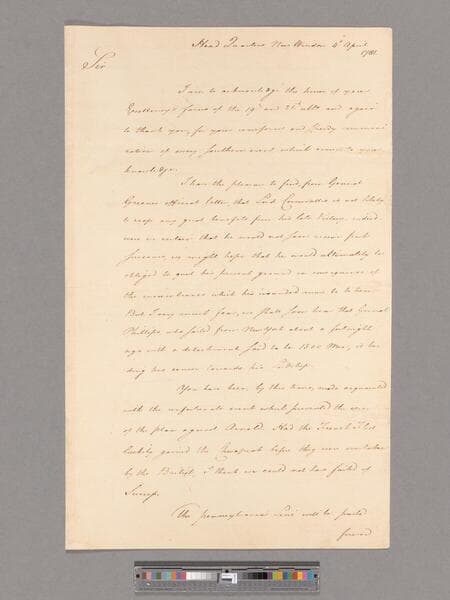 Head Quarters New Windsor 4th April
1781.
Sir
I am to acknowledge the honor of your
Excellency's favors of the 19th and 21st ulto and again
to thank you, for your uniform and timely communi-
cation of every Southern event which comes to your
knowledge.
I have the pleasure to find, from General
Greene's official letter, that Lord Cornwallis is not likely
to reap any great benefits from his late Victory. indeed
were we certain that he would not soon receive fresh
succours, we might hope that he would ultimately be
obliged to quit his present ground in consequence of
the incumbrance which his wounded must be to him
But I very much fear, we shall soon hear that General
Phillips who sailed from New York about a fortnight
ago with a detachment said to be 1500 Men, is ben-
ding his course towards his Lordship.
You have been, by this time, made acquainted
with the unfortunate event which prevented the
of the plan against Arnold. Had the French Fleet
luckily gained the Chesapeak before they were overtaken
by the British, I think we could not have failed of
Success.
The Pennsylvania Line will be
forward